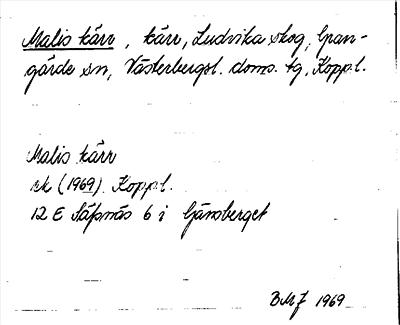 Malis kärr, kärr, Ludvika skog, Gran-
gärde sn, Västerbergsl. doms. tg, Koppl.
Malis kärr
rk (1969) Koppl.
12 E Säfsnäs 6 i Gänsberget
BMJ 1969